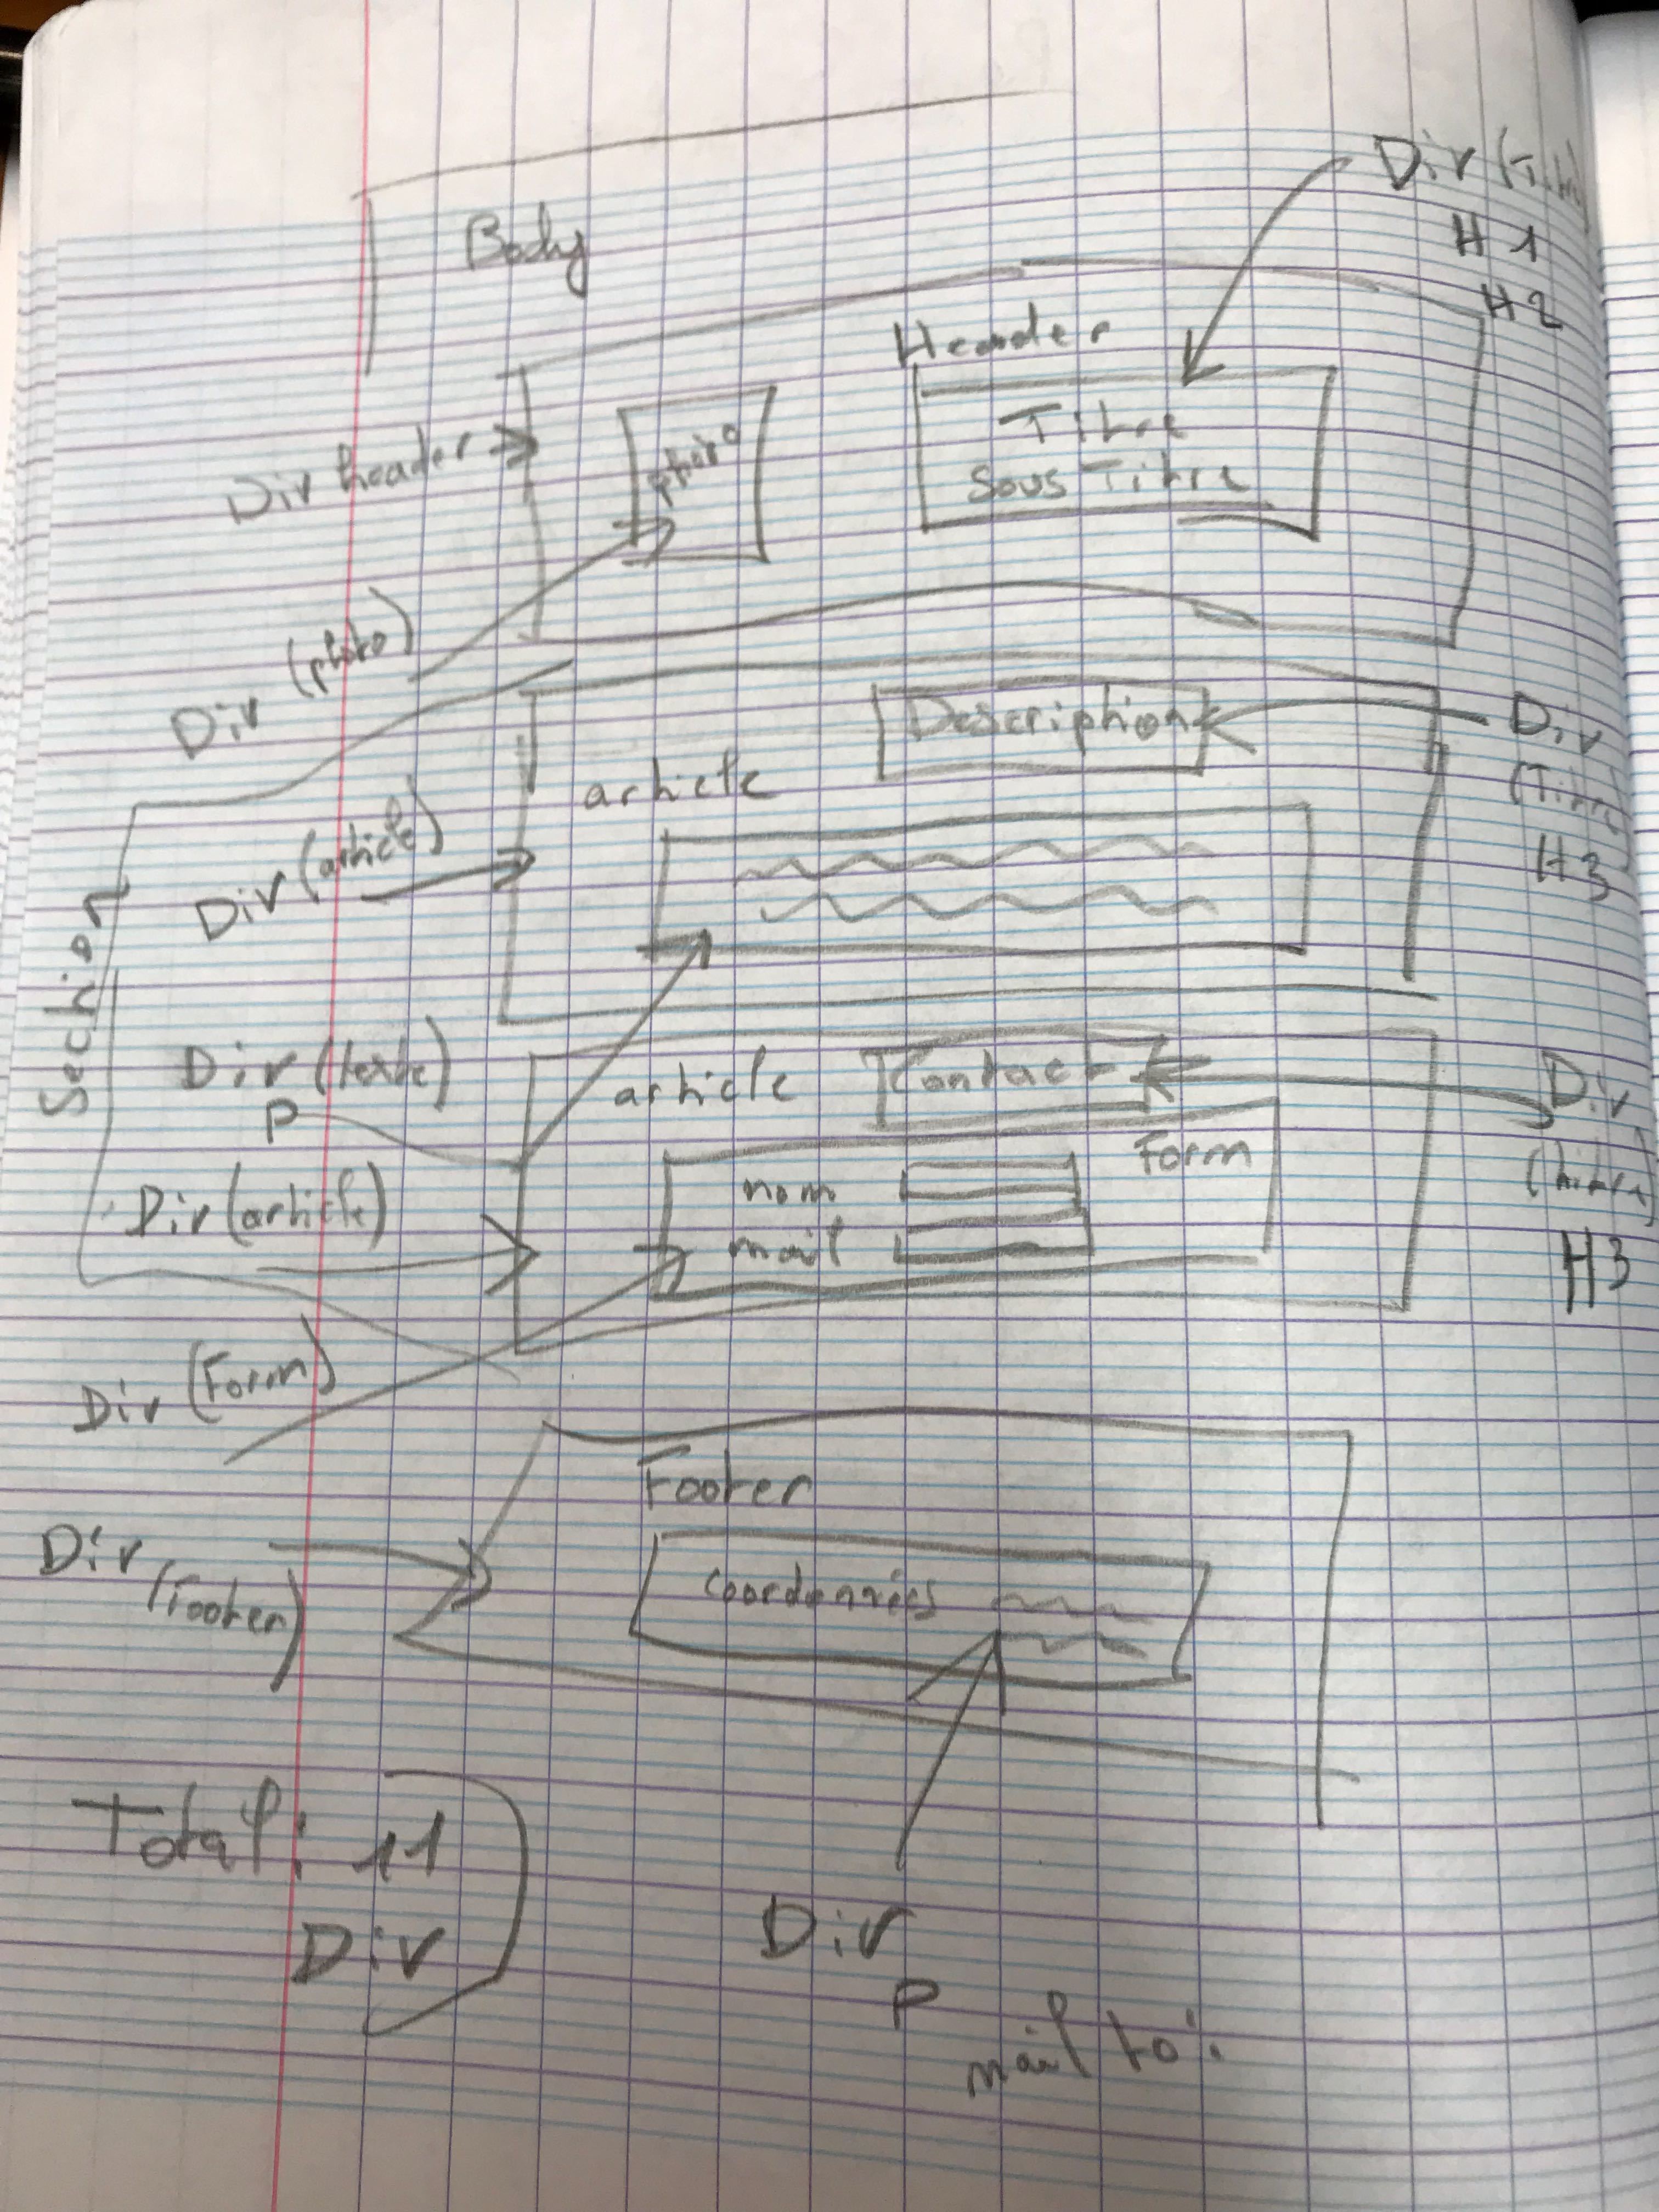 Div (Titre)
H1
H2
Body
Header
Div header
photo
Titre
Sous Titre
Div (photo)
Description
Div
(Titre
H3
article
Div (article)
Section
Div (texte)
P
article
Contact
Div
(titre)
H3
Form
nom
mail
Div (article)
Div (Form)
Footer
Div
(Footer)
Coordonnées
Total: 11
Div
Div
P
mail to: